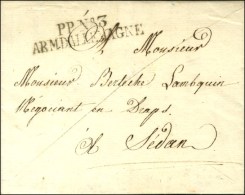 PP. N.º 3
ARM. D'ALLEMAGNE
A Monsieur
Monsieur Berteche Lambquin
Negociant en Draps
A Sédan